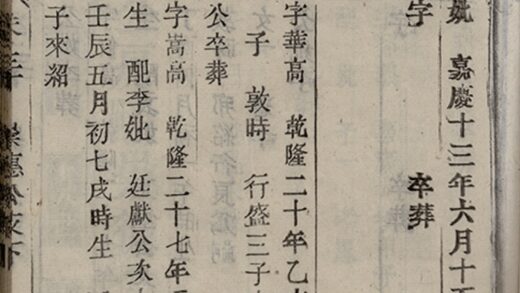 妣　嘉慶十三年六月十五
字　卒葬
字華高　乾隆二十年乙
子　敦時　行盛三子
公卒葬
字嵩高　乾隆二十七年
生　配李妣　廷獻公次
壬辰五月初七戌時生
子來紹